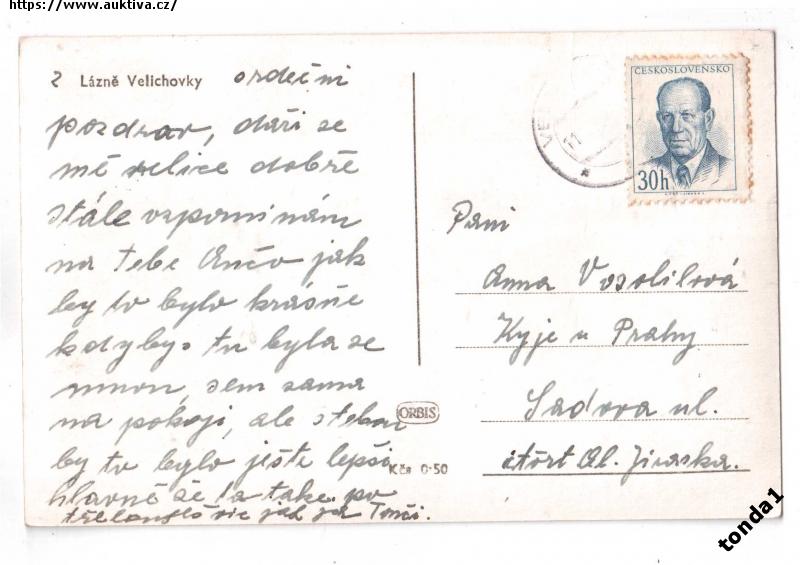 https://www.auktiva.cz/
z Lázně Velichovky srdečni
pozdrav, daři se
mě velice dobře
stále vzpominám
na tebe Ančo jak
by to bylo krásně
kdybys tu byla se
mnou, sem sama
na pokoji, ale s tebou
by to bylo ještě lepši
hlavně se ta take po
vic jak ja Tonči.
ORBIS
Kčs 0·50
ČESKOSLOVENSKO
30h
VE
11
Pani
Anna Vosolilová
Kyje u Prahy
Sadova ul.
čtvrt Al. Jiraska.
tonda1